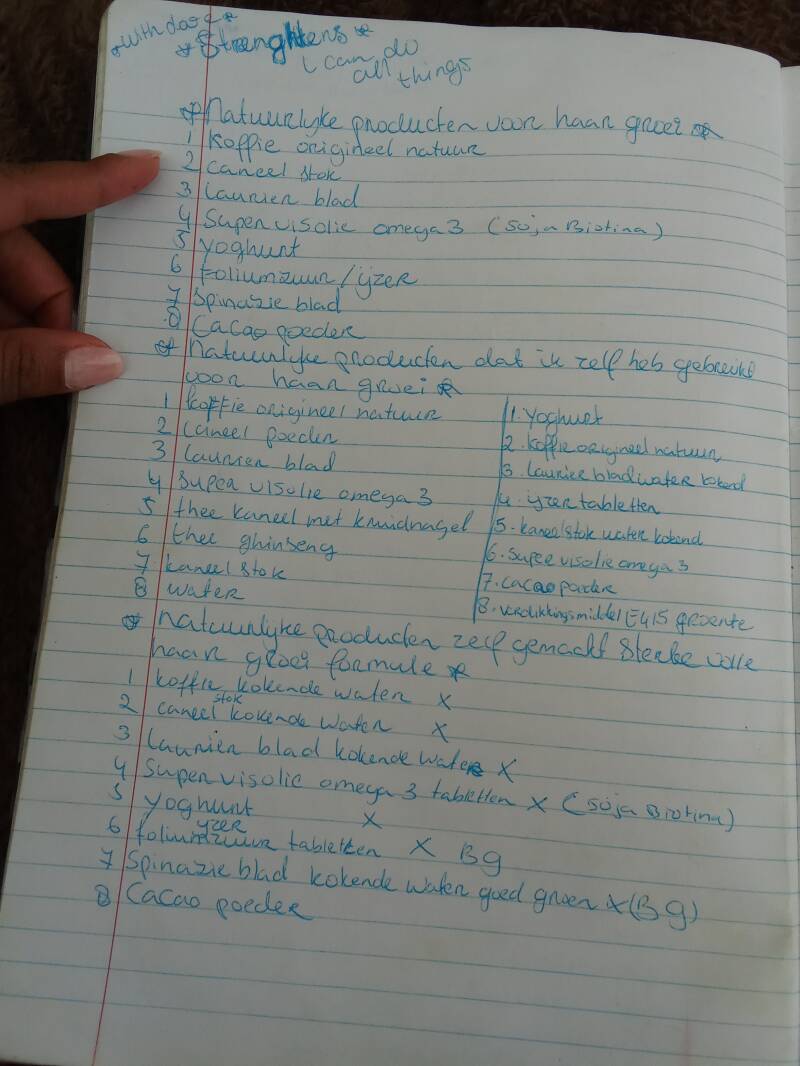 * with dose *
* Strenghtens *
I can do
all things
* Natuurlyke producten voor haar groei *
1 Koffie origineel natuur
2 Caneel stok
3 Laurien blad
4 Super visolie omega 3 (Soja Biotina)
5 Yoghurt
6 Foliumzuur / ijzer
7 Spinazie blad
8 Cacao poeder
* Natuurlyke producten dat ik zelf heb gebruikt
voor haar groei *
1 Koffie origineel natuur
2 Caneel poeder
3 Laurien blad
4 Super visolie omega 3
5 thee kaneel met kruidnagel
6 thee ghinseng
7 kaneel stok
8 water
1. Yoghurt
2. Koffie origineel natuur
3. Laurier blad water kokend
4. ijzer tabletten
5. kaneel stok water kokend
6. Super visolie omega 3
7. Cacao poeder
8. Verdikkingsmiddel E415 groente
* Natuurlyke producten zelf gemaakt Sterke volle
haar groei formule *
1 Koffie kokende water X
2 Caneel stok kokende water X
3 Laurien blad kokende water X
4 Super visolie omega 3 tabletten X (Soja Biotina)
5 Yoghurt X
6 foliumzuur yzer tabletten X BG
7 Spinazie blad kokende water goed groen X (BG)
8 Cacao poeder